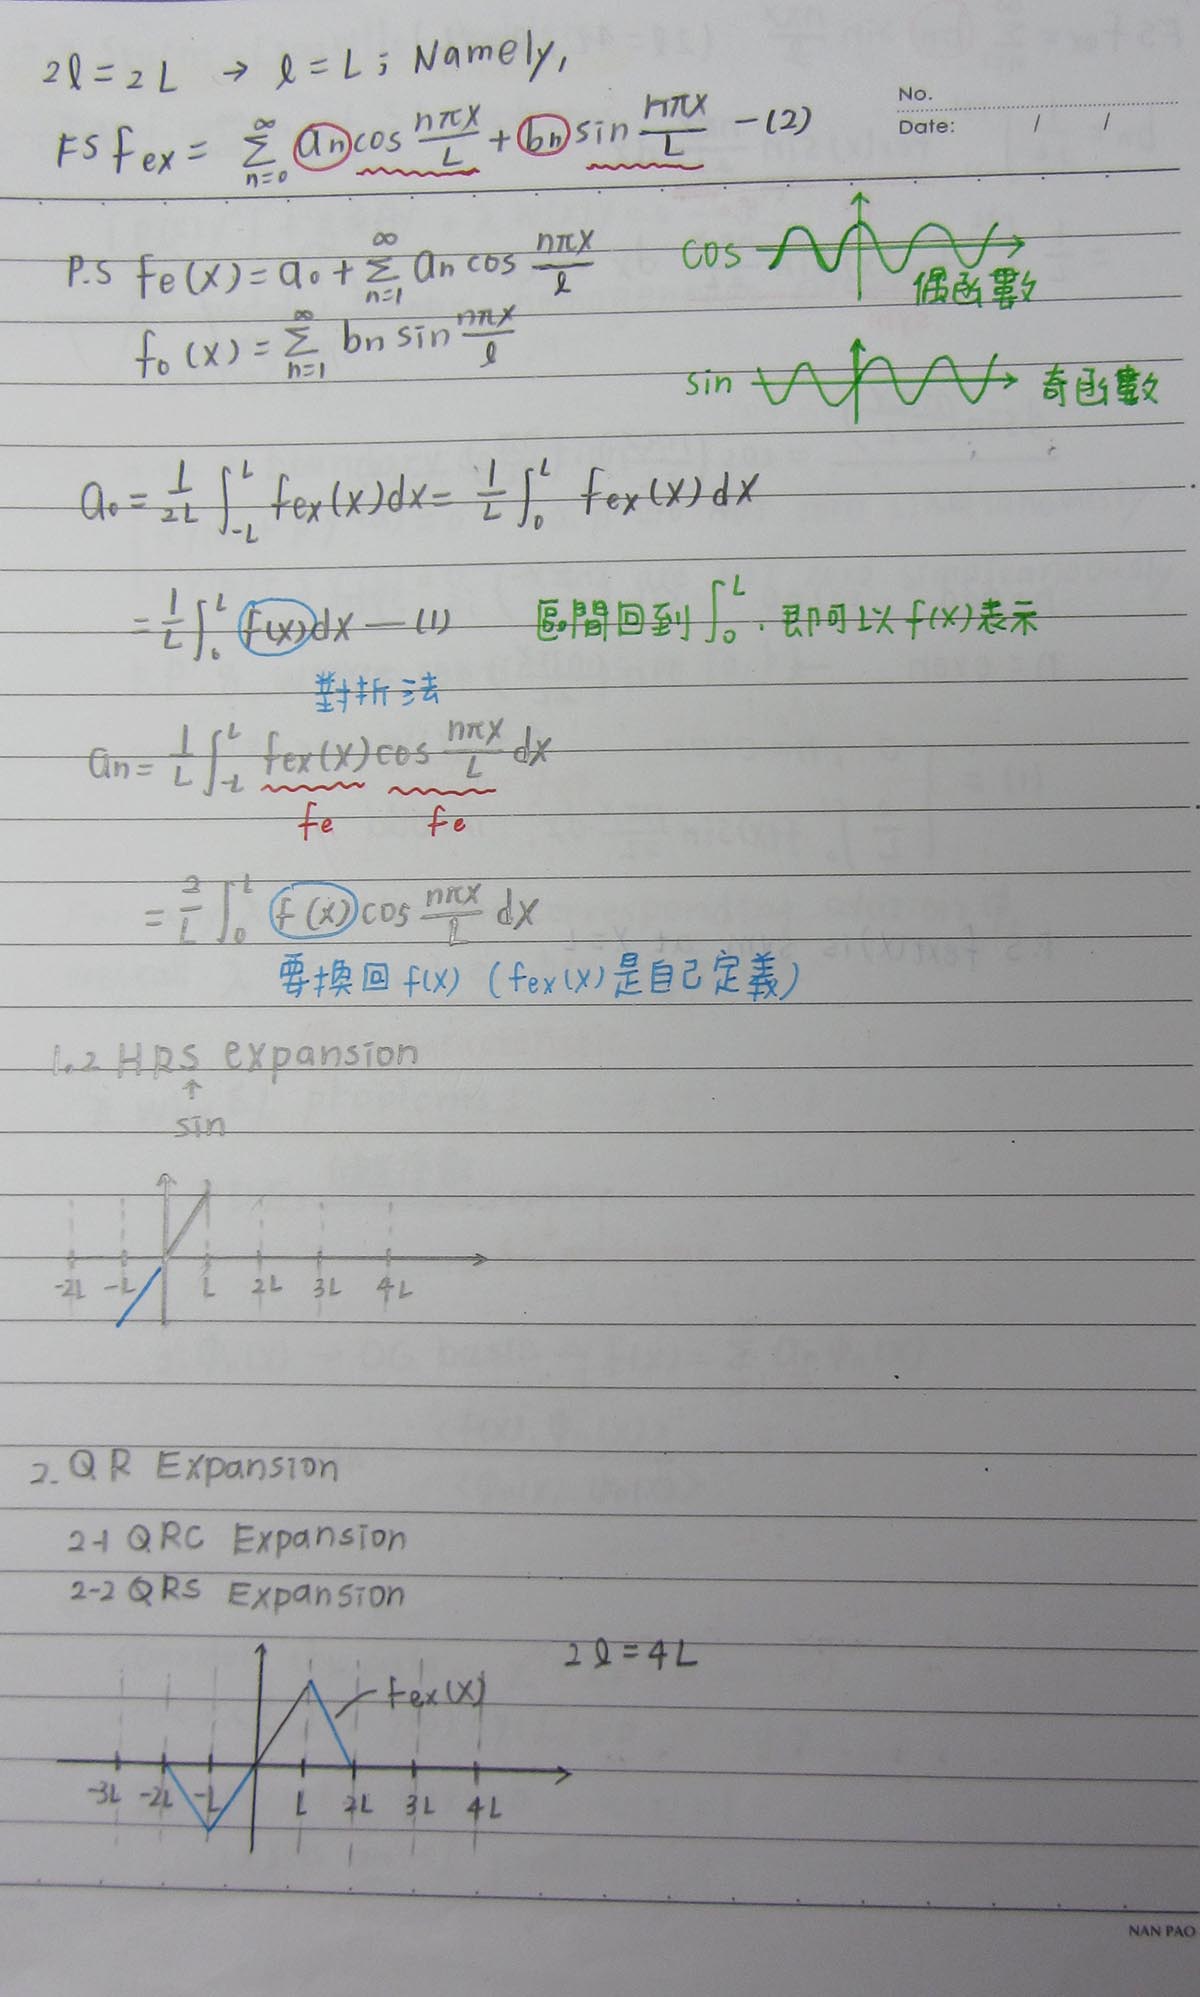 2l = 2L → l = L ; Namely,
No.
Date: / /
FS fex = ∑_{n=0}^{∞} an cos nπx/L + bn sin nπx/L —(2)
P.S fe(x) = a0 + ∑_{n=1}^{∞} an cos nπx/l
cos
偶函數
fo(x) = ∑_{n=1}^{∞} bn sin nπx/l
sin
奇函數
a0 = 1/2L ∫_{-L}^{L} fex(x)dx = 1/L ∫_0^L fex(x)dx
= 1/L ∫_0^L f(x)dx —(1)
區間回到 ∫_0^L . 即可以 f(x)表示
對折法
an = 1/L ∫_{-L}^{L} fex(x) cos nπx/L dx
fe fe
= 2/L ∫_0^L f(x) cos nπx/L dx
要換回 f(x) (fex(x) 是自己定義)
1.2 HRS expansion
↑
sin
-2L -L L 2L 3L 4L
2. QR Expansion
2-1 QRC Expansion
2-2 QRS Expansion
2l = 4L
fex(x)
-3L -2L -L L 2L 3L 4L
NAN PAO